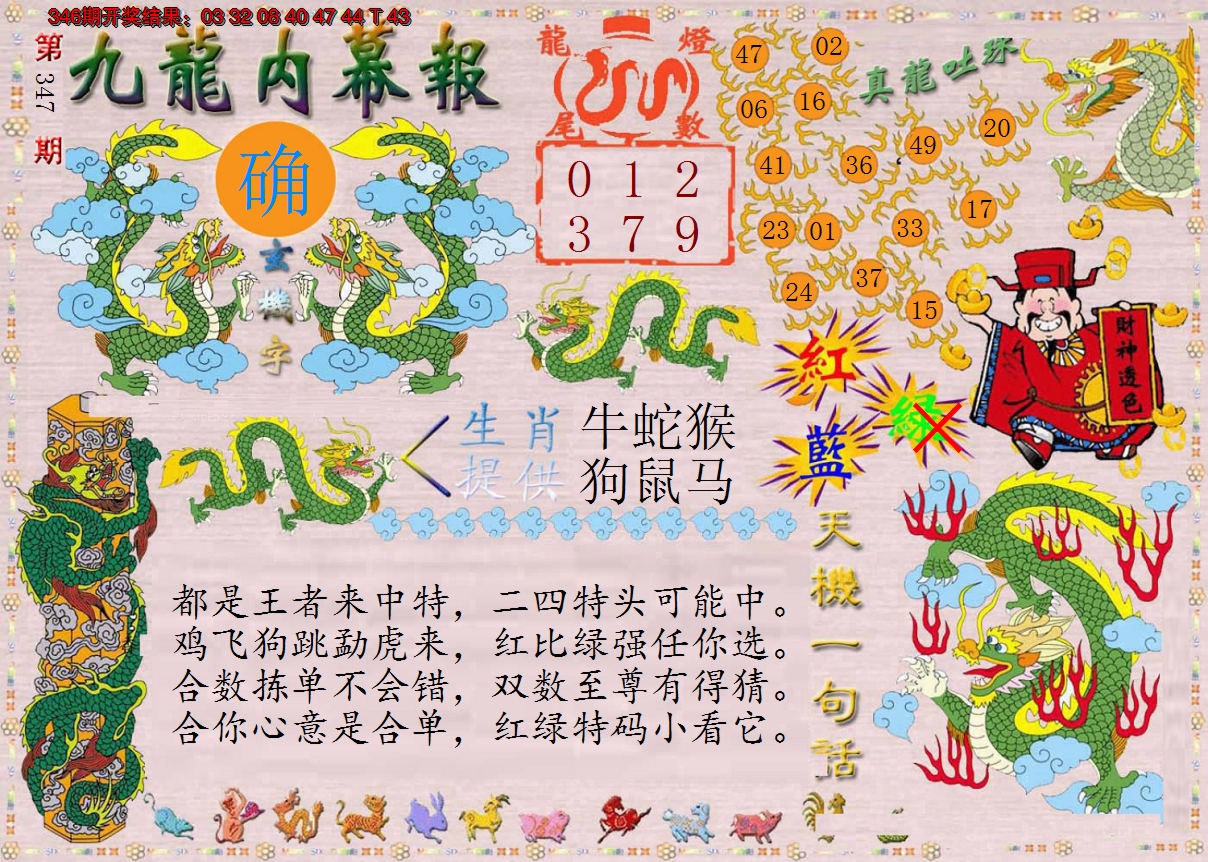 346期开奖结果：03 32 08 40 47 44 T 43
第347期
九龍内幕報
龍燈
尾數
0 1 2
3 7 9
真龍吐珠
47 02
06 16
41 36 49 20
23 01 33 17
24 37 15
确
玄機字
財神透色
紅
綠
藍
生肖 牛蛇猴
提供 狗鼠马
天機一句话
都是王者来中特，二四特头可能中。
鸡飞狗跳勐虎来，红比绿强任你选。
合数拣单不会错，双数至尊有得猜。
合你心意是合单，红绿特码小看它。